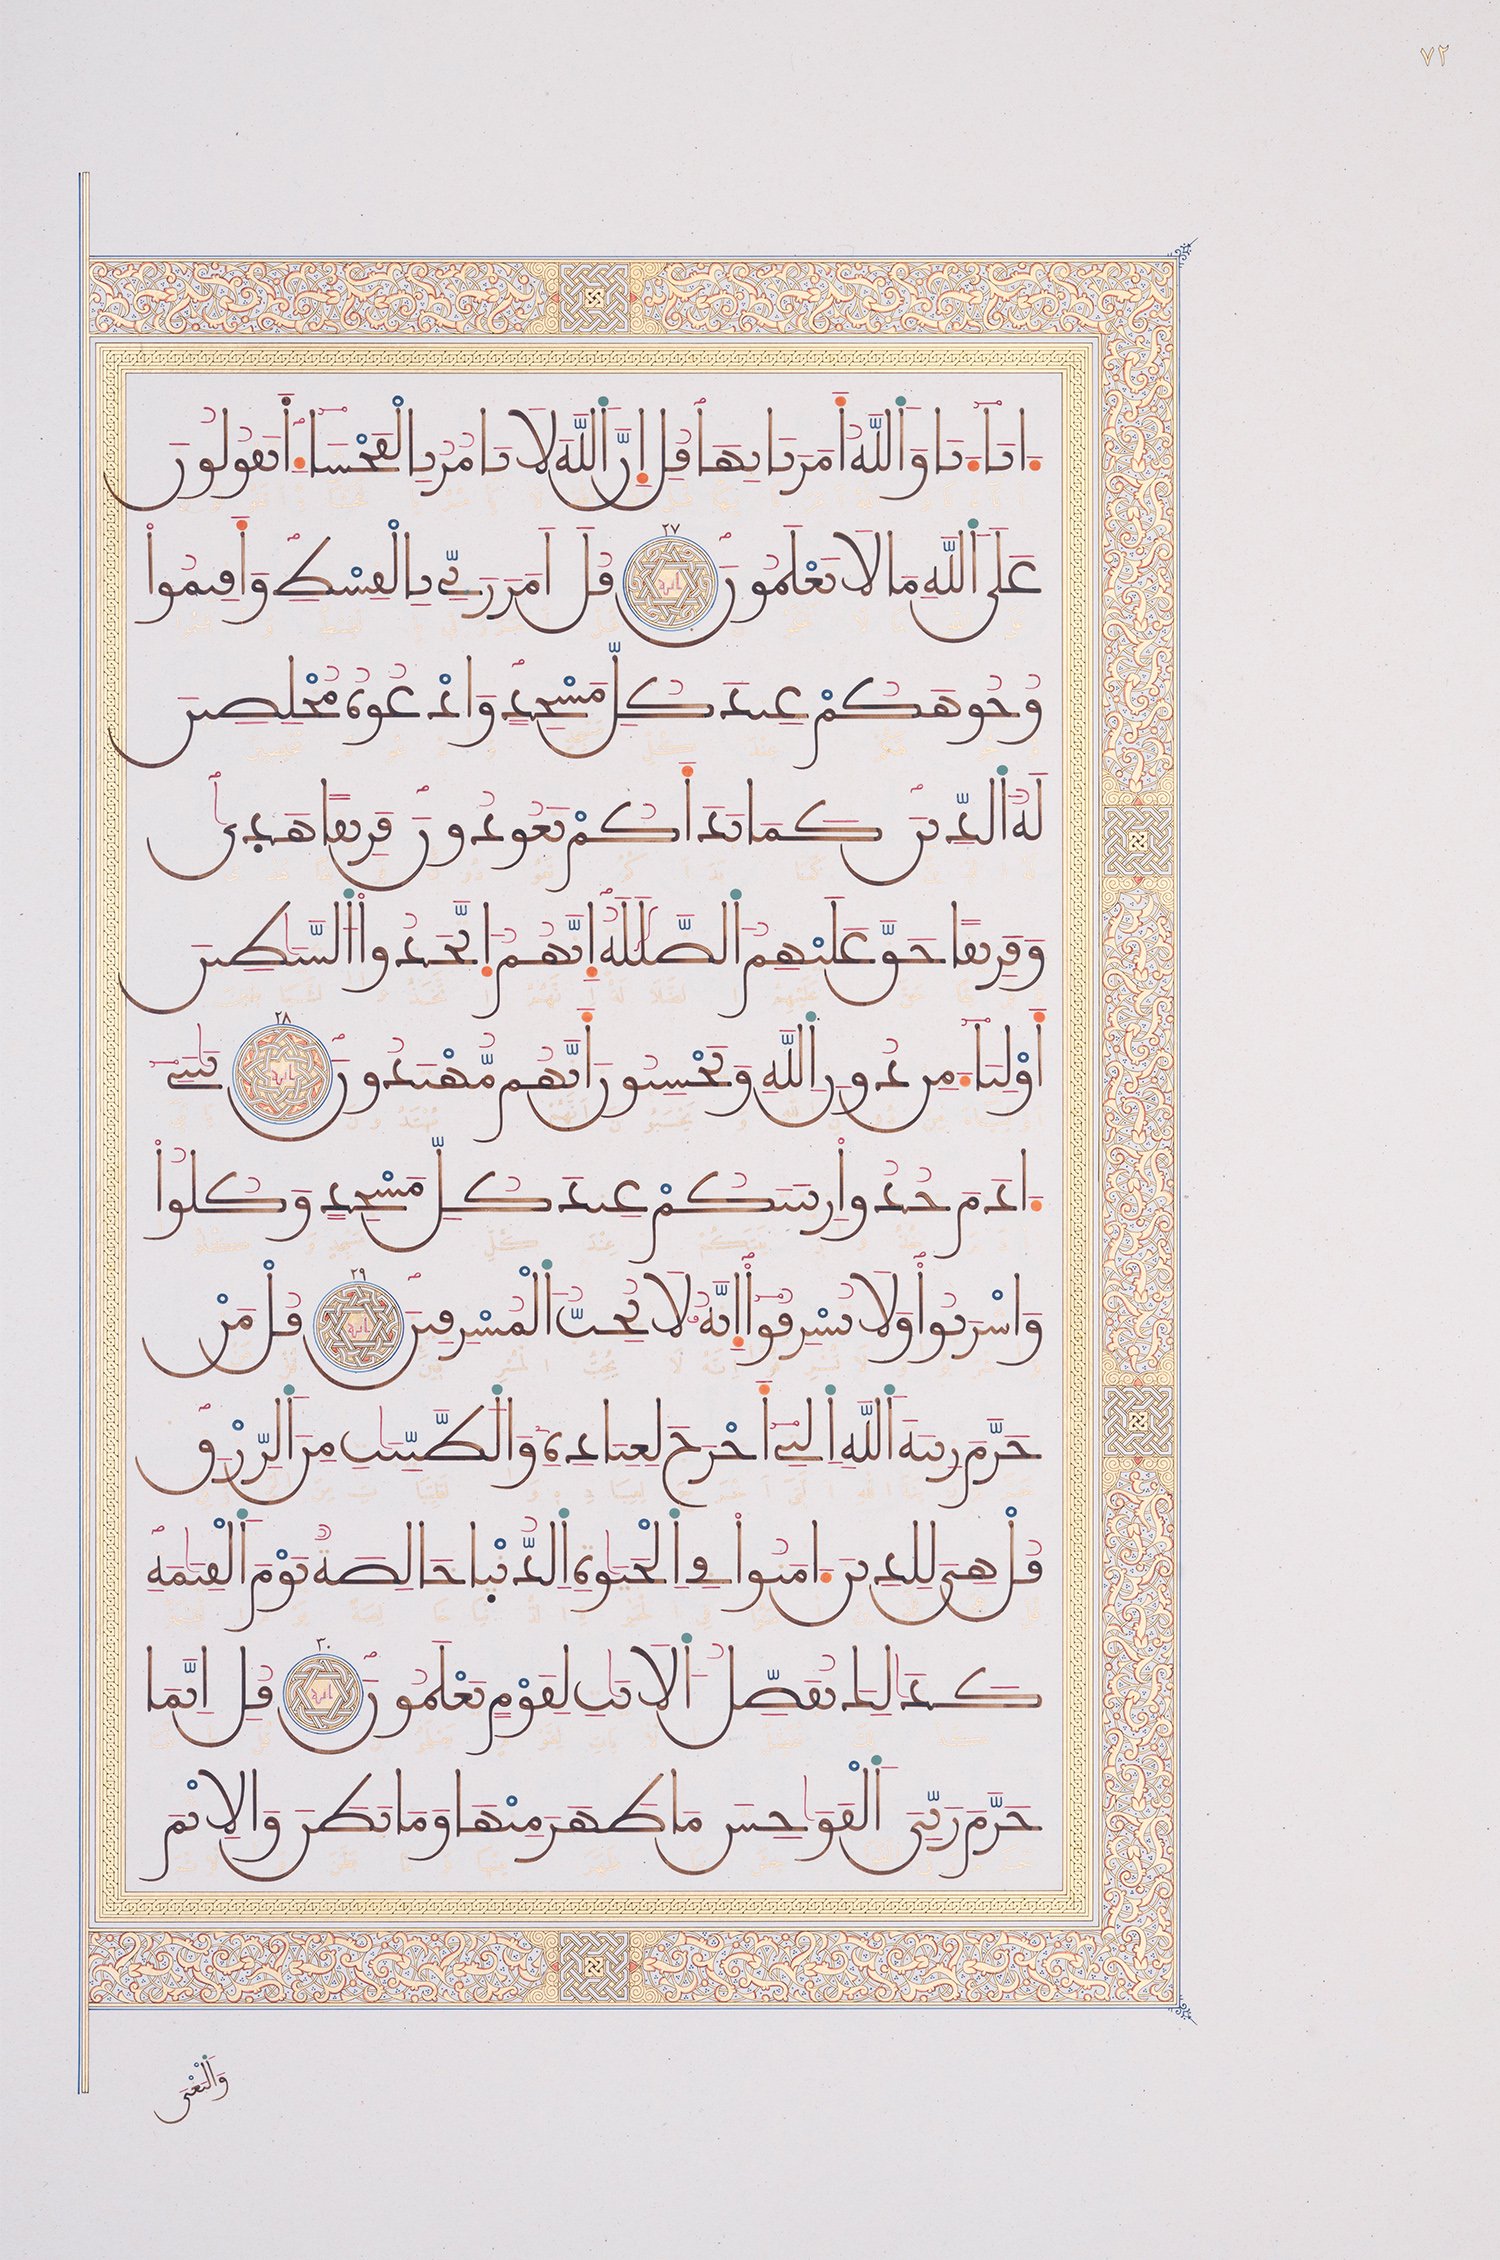 ٧٢
ءَابَآءَنَا وَاللَّهُ أَمَرَنَا بِهَا قُلِ إِنَّ اللَّهَ لَا يَامُرُ بِالْفَحْشَآءِ اَتَقُولُونَ
عَلَى اللَّهِ مَا لَا تَعْلَمُونَ ٢٧ قُلَ اَمَرَ رَبِّي بِالْقِسْطِ وَأَقِيمُوا
وُجُوهَكُمْ عِندَ كُلِّ مَسْجِدٍ وَادْعُوهُ مُخْلِصِينَ
لَهُ الدِّينَ كَمَا بَدَأَكُمْ تَعُودُونَ فَرِيقًا هَدَى
وَفَرِيقًا حَقَّ عَلَيْهِمُ الضَّلَلَةُ إِنَّهُمُ إِتَّخَذُوا الشَّيَاطِينَ
أَوْلِيَآءَ مِن دُونِ اللَّهِ وَيَحْسِبُونَ أَنَّهُم مُّهْتَدُونَ ٢٨ يَابَنِي
ءَادَمَ خُذُوا زِينَتَكُمْ عِندَ كُلِّ مَسْجِدٍ وَكُلُوا
وَاشْرَبُوا وَلَا تُسْرِفُوا إِنَّهُ لَا يُحِبُّ الْمُسْرِفِينَ ٢٩ قُلْ مَنْ
حَرَّمَ زِينَةَ اللَّهِ الَّتِي أَخْرَجَ لِعِبَادِهِ وَالطَّيِّبَاتِ مِنَ الرِّزْقِ
قُلْ هِيَ لِلَّذِينَ ءَامَنُوا فِي الْحَيَوةِ الدُّنْيَا خَالِصَةٌ يَوْمَ الْقِيَامَةِ
كَذَالِكَ نُفَصِّلُ الَايَاتِ لِقَوْمٍ يَعْلَمُونَ ٣٠ قُلِ اِنَّمَا
حَرَّمَ رَبِّيَ الْفَوَاحِشَ مَا ظَهَرَ مِنْهَا وَمَا بَطَنَ وَالِاثْمَ
وَالْبَغْيَ